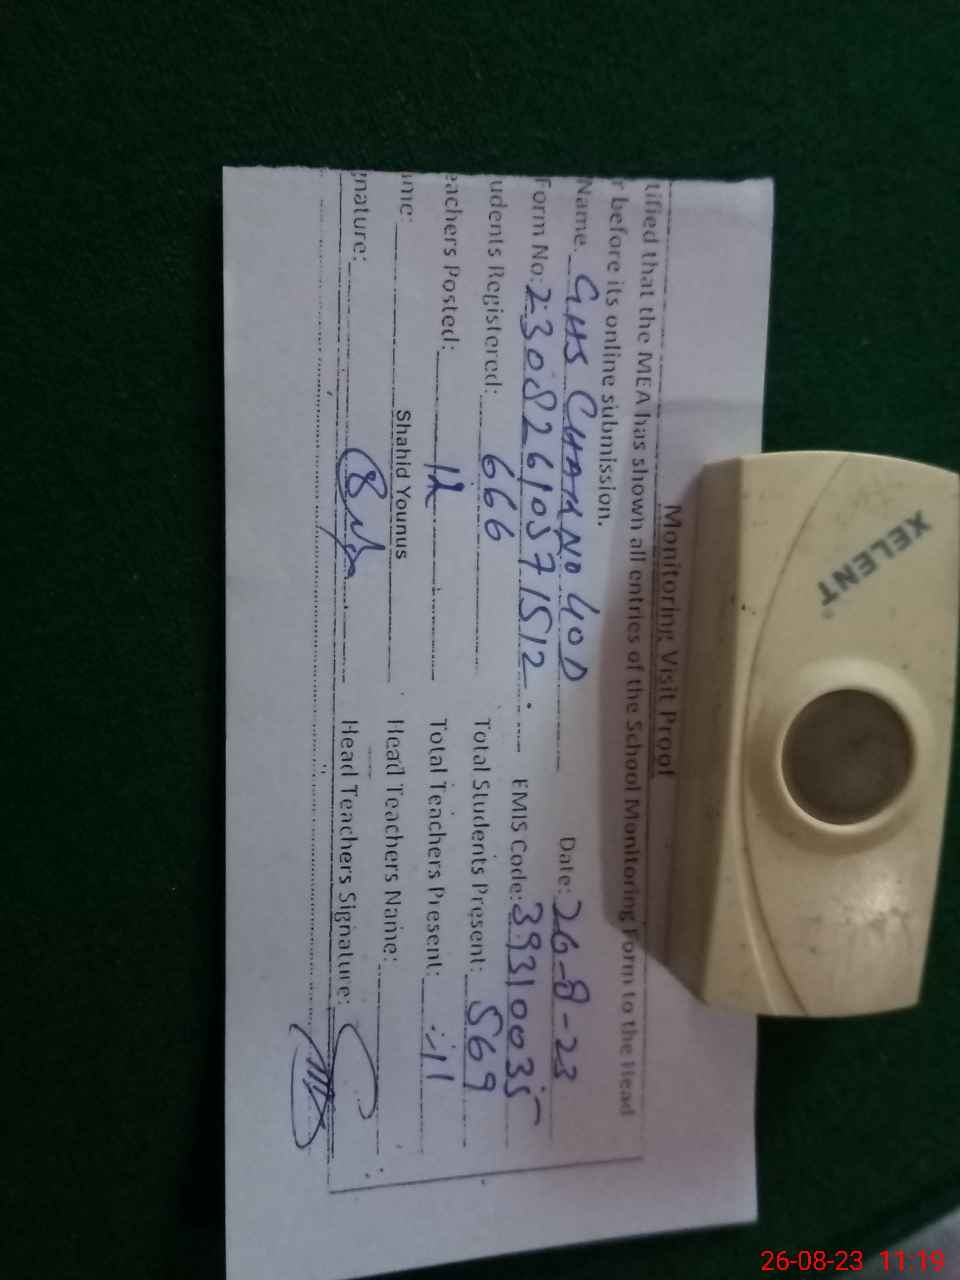 Monitoring Visit Proof
tified that the MEA has shown all entries of the School Monitoring Form to the Head
r before its online submission.
Name. GHS CHAK NO 40D Date: 26-8-23
Form No: 23082610571512. EMIS Code: 39310035
udents Registered: 666 Total Students Present: 569
eachers Posted: 12 Total Teachers Present: 11
ame: Shahid Younus Head Teachers Name:
gnature: Head Teachers Signature:
XELENT
26-08-23 11:19